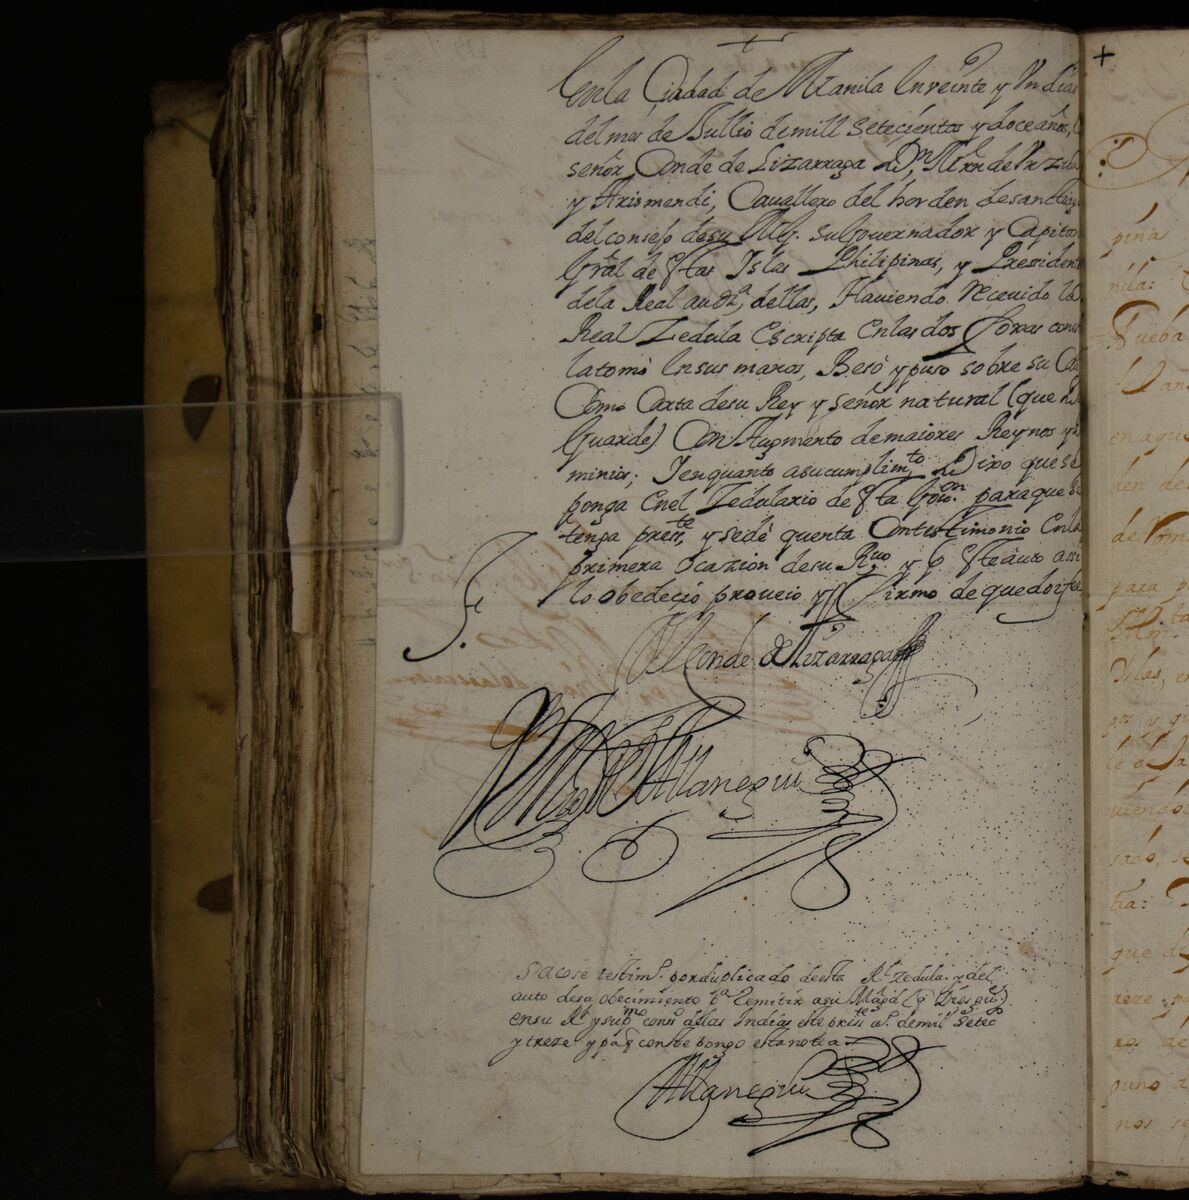 +
En la Ciudad de Manila en veinte y Un dias
del mes de Jullio de mill setecientos y doce años, el
señor Conde de Lizarraga Dn, Mrn de Vrzua
y Arismendi, Cauallero del horden de sanctiago
del consejo de su Mg. su Gouernador y Capitan
Gral de estas Islas Philipinas, y President
de la Real audª, dellas, Hauiendo Receuido la
Real Zedula escripta en las dos foxas con
la tomo en sus manos, Besò y puso sobre su
Como Carta de su Rey y señor natural (que
Guarde) Con Augmento de maiores Reynos y
minios; Y en quanto a su cumplimto Dixo que se
ponga en el Zedulario de esta Gouon. para que se
tenga preste, y se dè quenta Con testimonio en la
primera ocazion de su Rno y Pr este auto assi
lo obedeciò proueio y firmo de que doi fee
El Conde de Lizarraga
Allanegui
sacose testimo. por duplicado de esta Rl zedula. y del
auto de su obecimiento pa Remitir a su Magd (q Dios gue)
en su Rl y supmo consº de las Indias este preste aº. de mil setecos
y treze y pa q conste pongo esta nota
Allanegui
+
pina
nila:
Pueba
en aque
den de
para p
Islas, e
uiendo
sado, se
tia:
que d
reze p
ros de
puno a
nos se